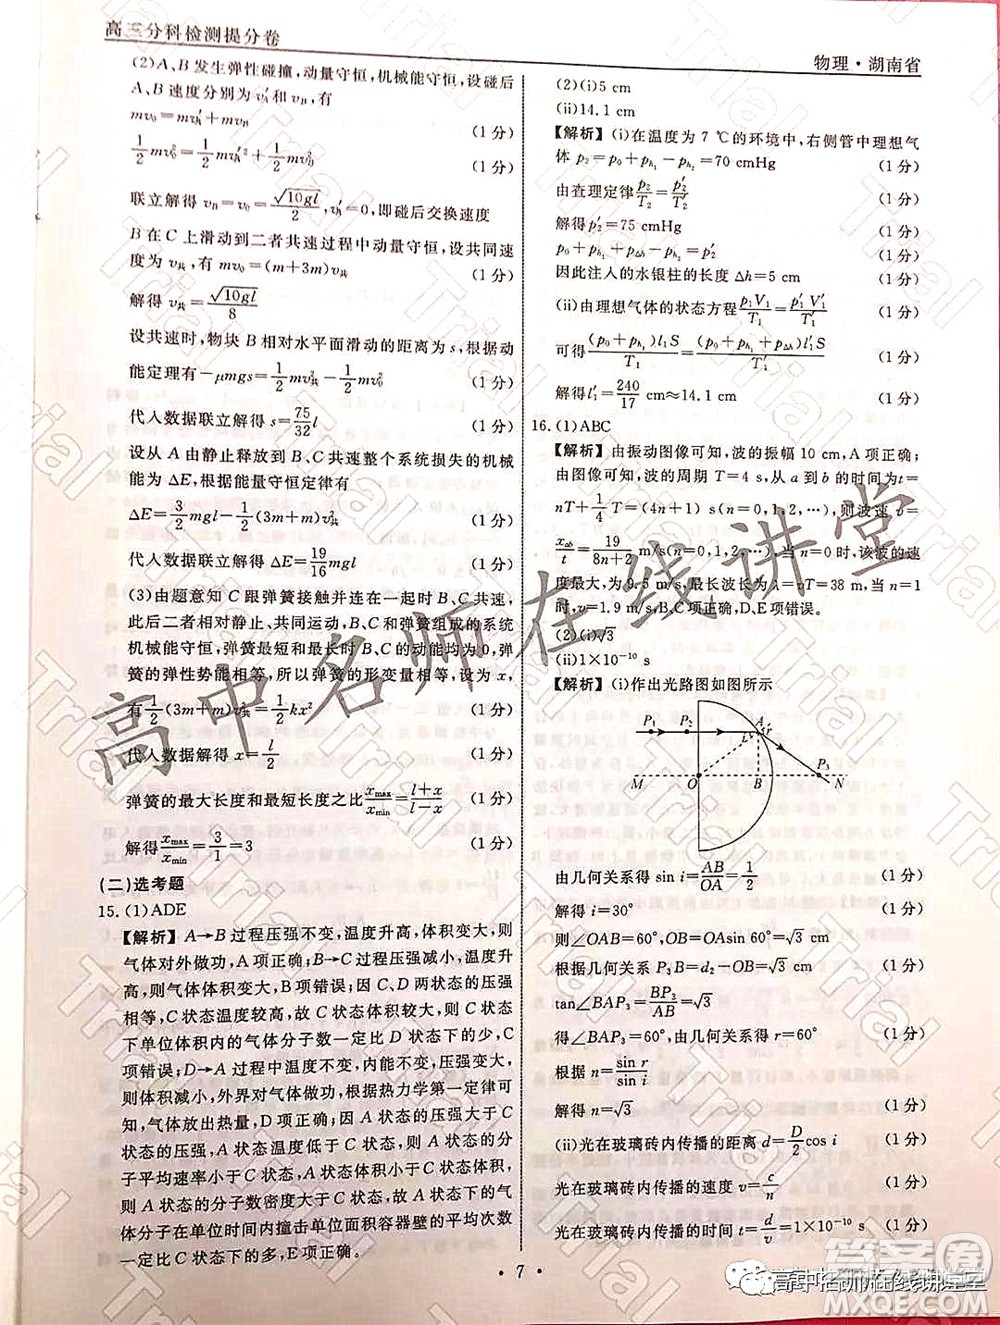 高三分科检测提分卷
物理·湖南省
(2)A、B发生弹性碰撞,动量守恒,机械能守恒,设碰后
A、B速度分别为v′A和vB,有
mv0=mv′A+mvB (1分)
1/2mv0²=1/2mv′A²+1/2mvB² (1分)
联立解得vB=√(10gl)/2,v′A=0,即碰后交换速度
B在C上滑动到二者共速过程中动量守恒,设共同速
度为v共,有mv0=(m+3m)v共 (1分)
解得v共=√(10gl)/8
设共速时,物块B相对水平面滑动的距离为s,根据动
能定理有-μmgs=1/2mv共²-1/2mv0² (1分)
代人数据联立解得s=75/32l (1分)
设从A由静止释放到B、C共速整个系统损失的机械
能为ΔE,根据能量守恒定律有
ΔE=3/2mgl-1/2(3m+m)v共² (1分)
代人数据联立解得ΔE=19/16mgl (1分)
(3)由题意知C跟弹簧接触并连在一起时B、C共速,
此后二者相对静止、共同运动,B、C和弹簧组成的系统
机械能守恒,弹簧最短和最长时B、C的动能均为0,弹
簧的弹性势能相等,所以弹簧的形变量相等,设为x,
有1/2(3m+m)v共²=1/2kx² (1分)
代人数据解得x=l/2 (1分)
弹簧的最大长度和最短长度之比xmax/xmin=(l+x)/(l-x) (1分)
解得xmax/xmin=3/1=3 (1分)
(二)选考题
15.(1)ADE
【解析】A→B过程压强不变,温度升高,体积变大,
气体对外做功,A项正确;B→C过程压强减小,温度
升高,则气体体积变大,所以C状态体积大于D状态
体积,C状态温度较高,故C状态体积大,故C状态下
单位体积内的气体分子数一定比D状态下的少,B、
C项错误;D→A过程温度不变,压强变大,则气体体
积变小,外界对气体做功,根据热力学第一定律可知,
气体放出热量,D项正确;由于A状态的压强大于C
状态,A状态温度低于C状态,A状态气体分子的平
均速率小于C状态,A状态体积小于C状态体积,
则A状态的分子数密度大于C状态,故A状态的气
体分子在单位时间内撞击单位面积容器壁的平均次数
一定比C状态下的多,E项正确。
(2)(i)5 cm
(ii)14.1 cm
【解析】(i)在温度为7 ℃的环境中,右侧管中理想气
体p2=p0+ph1-ph2=70 cmHg (1分)
由查理定律p2/T2=p′2/T′2 (1分)
解得p′2=75 cmHg (1分)
p0+ph1+pΔh=ph2+p′2 (1分)
因此注人的水银柱的长度Δh=5 cm (1分)
(ii)由理想气体的状态方程p1V1/T1=p′1V′1/T′1 (1分)
可得(p0+ph1)l1S/T1=(p0+ph1+pΔh)l′1S/T′1 (1分)
解得l′1=240/17 cm≈14.1 cm (1分)
16.(1)ABC
【解析】由振动图像可知,波的振幅10 cm,A项正确;
由图像可知,波的周期T=4 s,从a到b的时间为t=
nT+1/4T=(4n+1) s(n=0,1,2,…),则波速v=
xab/t=19/(8n+2) m/s(n=0,1,2,…),当n=0时,该波的速
度最大,为9.5 m/s,最长波长为λ=vT=38 m,当n=1
时,v=1.9 m/s,B、C项正确,D、E项错误。
(2)(i)√3
(ii)1×10⁻¹⁰ s
【解析】(i)作出光路图如图所示
P1 P2 A
i r
M O B P3 N
由几何关系得sin i=AB/OA=1/2 (1分)
解得i=30° (1分)
则∠OAB=60°,OB=OAsin 60°=√3 cm
根据几何关系得P3B=d2-OB=√3 cm (1分)
tan∠BAP3=BP3/AB=√3
得∠BAP3=60°,由几何关系得r=60° (1分)
根据n=sin r/sin i
解得n=√3 (1分)
(ii)光在玻璃砖内传播的距离d=D/2cos i (1分)
光在玻璃砖内传播的速度v=c/n (1分)
光在玻璃砖内传播的时间t=d/v=1×10⁻¹⁰ s (1分)
·7·
高中名师在线讲堂
Trial
高中名师在线讲堂
答案圈
MXQE.COM